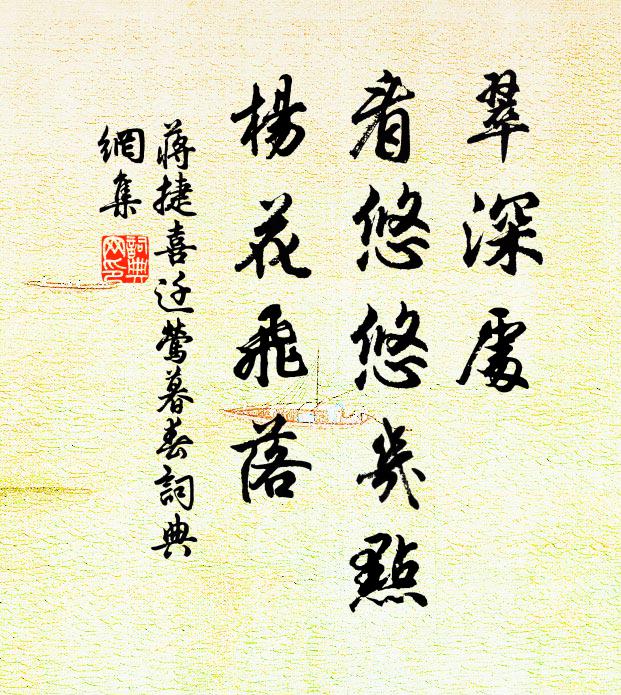 翠深處
看悠悠幾點
楊花飛落
蔣捷喜迁鶯暮春詞典
網集
詞典
网印